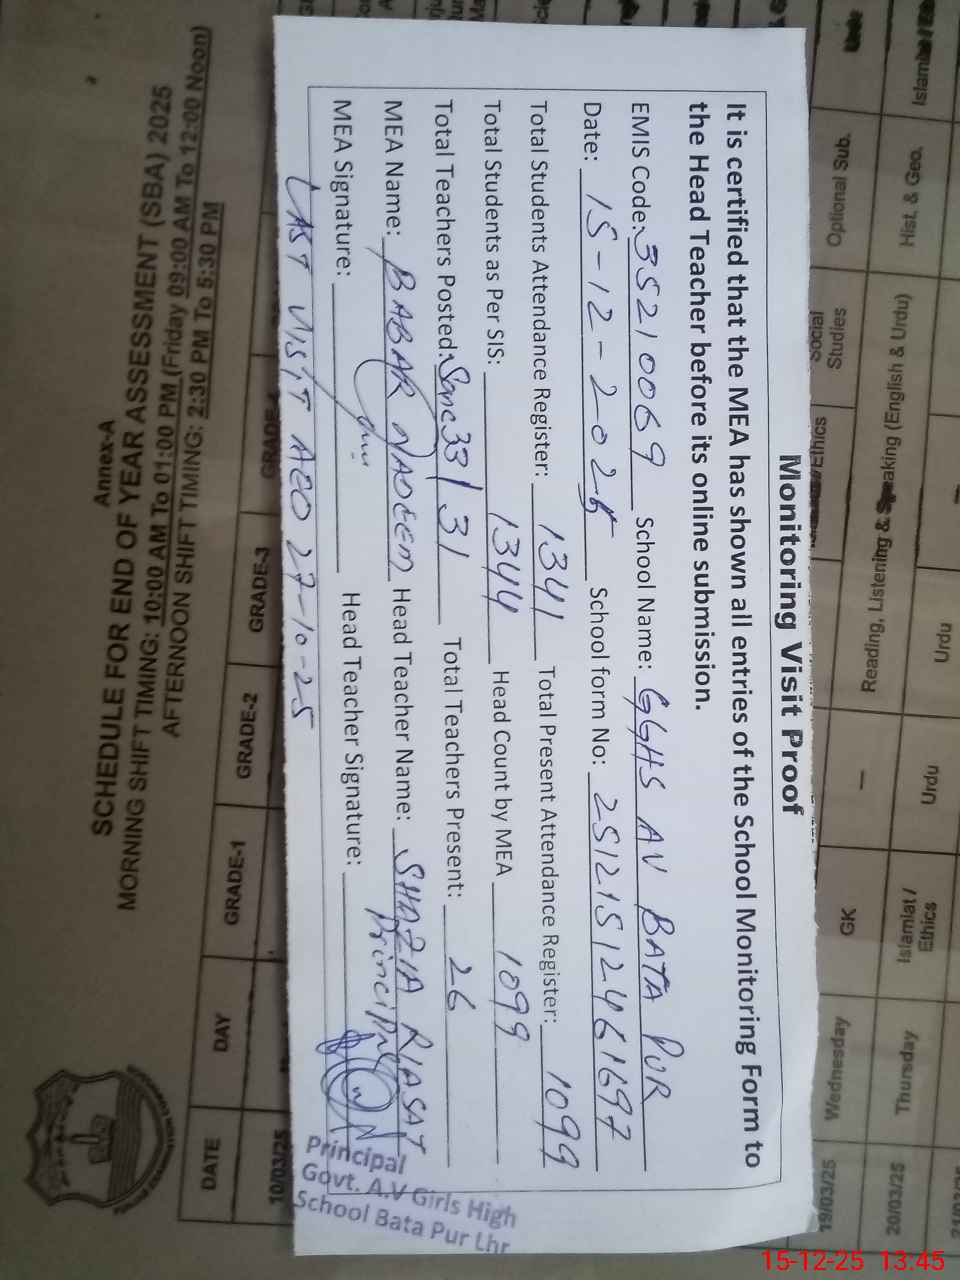 Monitoring Visit Proof
It is certified that the MEA has shown all entries of the School Monitoring Form to
the Head Teacher before its online submission.
EMIS Code: 35210069 School Name: GGHS AV BATA PUR
Date: 15-12-2025 School form No: 25121512461697
Total Students Attendance Register: 1341 Total Present Attendance Register: 1099
Total Students as Per SIS: 1344 Head Count by MEA 1099
Total Teachers Posted: Sanc 33/31 Total Teachers Present: 26
MEA Name: BABAR NADEEM Head Teacher Name: SHAZIA RIASAT
Principal
MEA Signature: Head Teacher Signature:
LAST VISIT AEO 27-10-25
Principal
Govt. A.V Girls High
School Bata Pur Lhr
Annex-A
SCHEDULE FOR END OF YEAR ASSESSMENT (SBA) 2025
MORNING SHIFT TIMING: 10:00 AM To 01:00 PM (Friday 09:00 AM To 12:00 Noon)
AFTERNOON SHIFT TIMING: 2:30 PM To 5:30 PM
DATE DAY GRADE-1 GRADE-2 GRADE-3
10/03/25
19/03/25 Wednesday GK — Social Studies Optional Sub.
Reading, Listening & Speaking (English & Urdu)
20/03/25 Thursday Islamiat / Ethics Urdu Hist. & Geo.
Urdu
15-12-25 13:45